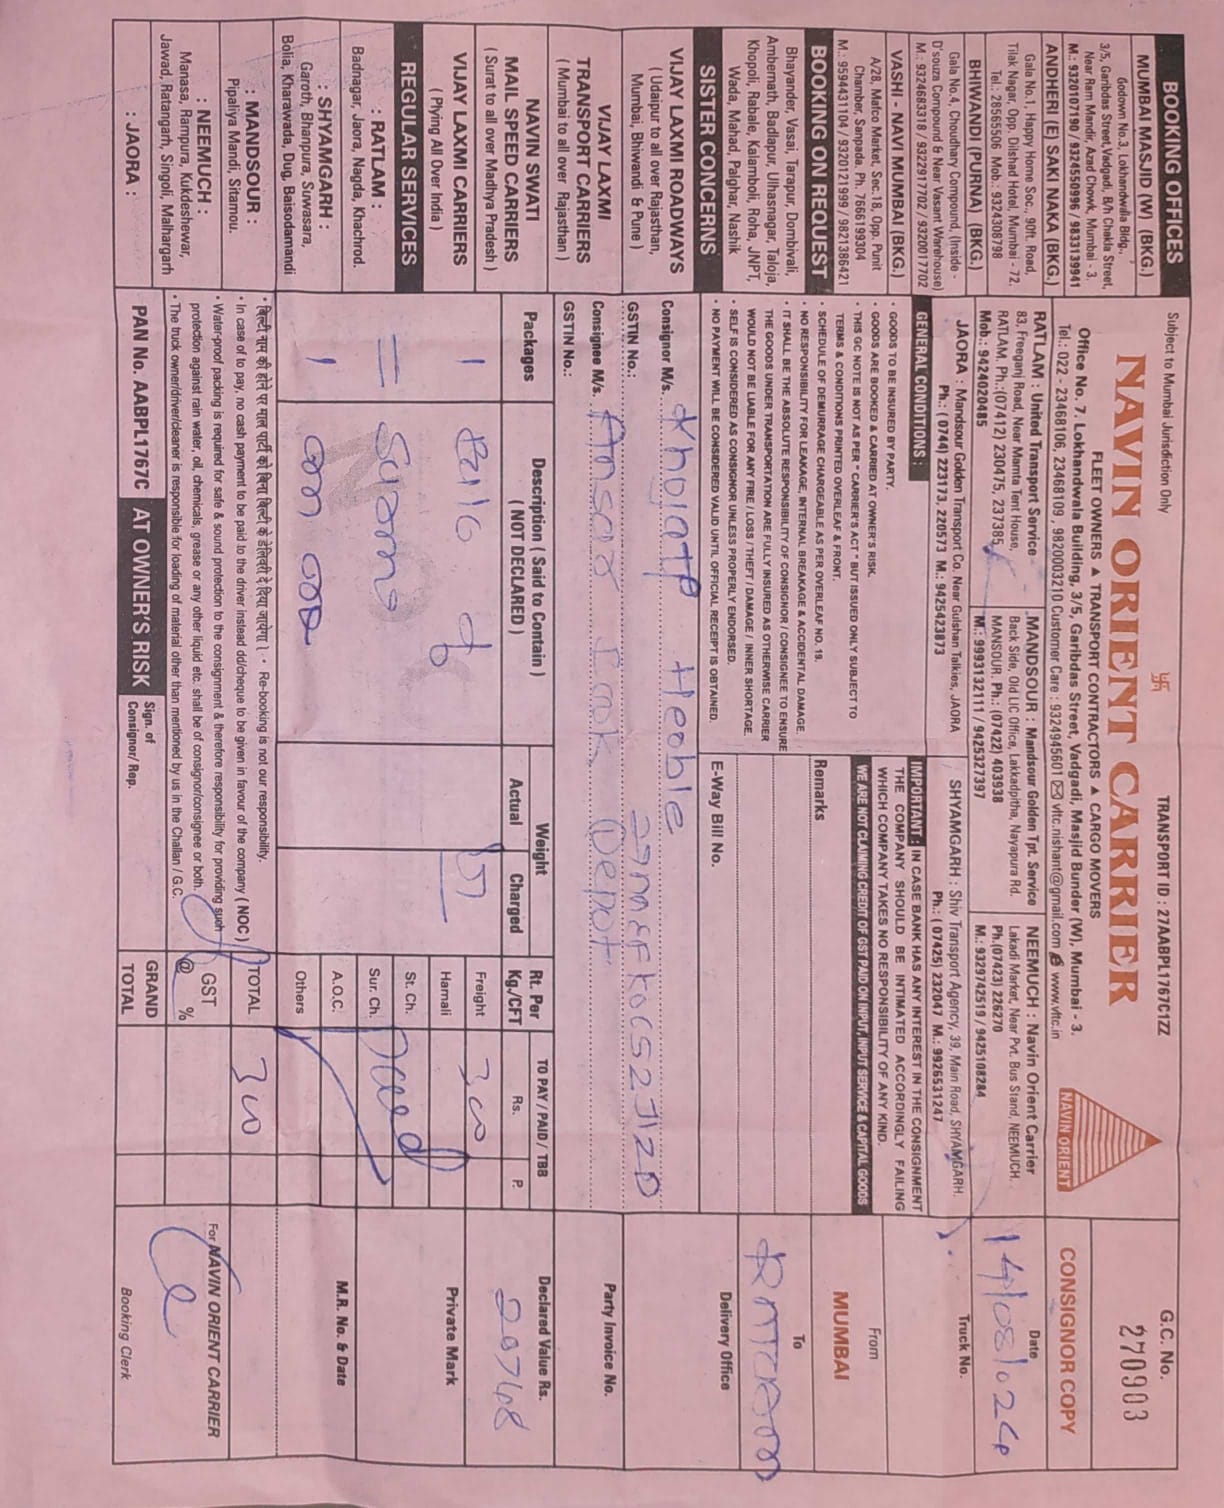 BOOKING OFFICES
MUMBAI MASJID (W) (BKG.)
Godown No.3, Lokhandwalla Bldg.,
3/5, Garibdas Street, Vadgadi, B/h Chakla Street,
Near Ram Mandir, Azad Chowk, Mumbai - 3.
M.: 9320107190 / 9324550996 / 9833139941
ANDHERI (E) SAKI NAKA (BKG.)
Gala No.1, Happy Home Soc., 90ft. Road,
Tilak Nagar, Opp. Dilshad Hotel, Mumbai - 72.
Tel.: 28565506 Mob.: 9324308798
BHIWANDI (PURNA) (BKG.)
Gala No.4, Choudhary Compound, (Inside -
D'souza Compound & Near Vasant Warehouse)
M.: 9324683318 / 9322917702 / 9320017702
VASHI - NAVI MUMBAI (BKG.)
A/28, Mafco Market, Sec.18, Opp. Punit
Chamber, Sanpada. Ph. 7666199304
M.: 9594431104 / 9320121999 / 9821386421
BOOKING ON REQUEST
Bhayander, Vasai, Tarapur, Dombivali,
Ambernath, Badlapur, Ulhasnagar, Taloja,
Khopoli, Rabale, Kalamboli, Roha, JNPT,
Wada, Mahad, Palghar, Nashik
SISTER CONCERNS
VIJAY LAXMI ROADWAYS
( Udaipur to all over Rajasthan,
Mumbai, Bhiwandi & Pune )
VIJAY LAXMI
TRANSPORT CARRIERS
( Mumbai to all over Rajasthan )
NAVIN SWATI
MAIL SPEED CARRIERS
( Surat to all over Madhya Pradesh )
VIJAY LAXMI CARRIERS
( Plying All Over India )
REGULAR SERVICES
: RATLAM :
Badnagar, Jaora, Nagda, Khachrod.
: SHYAMGARH :
Garoth, Bhanpura, Suwasara,
Bolia, Kharawada, Dug, Baisodamandi
: MANDSOUR :
Pipaliya Mandi, Sitamou.
: NEEMUCH :
Manasa, Rampura, Kukdeshewar,
Jawad, Ratangarh, Singoli, Malhargarh
: JAORA :
Subject to Mumbai Jurisdiction Only
卐
TRANSPORT ID : 27AABPL1767C1ZZ
NAVIN ORIENT CARRIER
FLEET OWNERS ▲ TRANSPORT CONTRACTORS ▲ CARGO MOVERS
Office No. 7, Lokhandwala Building, 3/5, Garibdas Street, Vadgadi, Masjid Bunder (W), Mumbai - 3.
Tel.: 022 - 23468106, 23468109, 9820003210 Customer Care : 9324945601 ✉ vltc.nishant@gmail.com www.vltc.in
NAVIN ORIENT
RATLAM : United Transport Service
83, Freeganj Road, Near Mamta Tent House,
RATLAM, Ph.:(07412) 230475, 237385
Mob.: 9424020485
MANDSOUR : Mandsour Golden Tpt. Service
Back Side, Old LIC Office, Lakkadpitha, Nayapura Rd.
MANSOUR. Ph.: (07422) 403938
M.: 9993132111 / 9425327397
NEEMUCH : Navin Orient Carrier
Lakadi Market, Near Pvt. Bus Stand, NEEMUCH.
Ph.(07423) 226270
M.: 9329742519 / 9425108284
JAORA : Mandsour Golden Transport Co. Near Gulshan Talkies, JAORA
Ph.: ( 0744) 223173, 220573 M.: 9425423873
SHYAMGARH : Shiv Transport Agency, 39, Main Road, SHYAMGARH.
Ph.: ( 07425) 232047 M.: 9926531247
G.C. No.
270903
CONSIGNOR COPY
Date
14/08/024
Truck No.
From
MUMBAI
To
Delivery Office
GENERAL CONDITIONS :
• GOODS TO BE INSURED BY PARTY.
• GOODS ARE BOOKED & CARRIED AT OWNER'S RISK.
• THIS GC NOTE IS NOT AS PER " CARRIER'S ACT " BUT ISSUED ONLY SUBJECT TO
TERMS & CONDITIONS PRINTED OVERLEAF & FRONT.
• SCHEDULE OF DEMURRAGE CHARGEABLE AS PER OVERLEAF NO. 19.
• NO RESPONSIBILITY FOR LEAKAGE, INTERNAL BREAKAGE & ACCIDENTAL DAMAGE.
• IT SHALL BE THE ABSOLUTE RESPONSIBILITY OF CONSIGNOR / CONSIGNEE TO ENSURE
THE GOODS UNDER TRANSPORTATION ARE FULLY INSURED AS OTHERWISE CARRIER
WOULD NOT BE LIABLE FOR ANY FIRE / LOSS / THEFT / DAMAGE / INNER SHORTAGE.
• SELF IS CONSIDERED AS CONSIGNOR UNLESS PROPERLY ENDORSED.
• NO PAYMENT WILL BE CONSIDERED VALID UNTIL OFFICIAL RECEIPT IS OBTAINED.
IMPORTANT : IN CASE BANK HAS ANY INTEREST IN THE CONSIGNMENT
THE COMPANY SHOULD BE INTIMATED ACCORDINGLY FAILING
WHICH COMPANY TAKES NO RESPONSIBILITY OF ANY KIND.
WE ARE NOT CLAIMING CREDIT OF GST PAID ON INPUT, INPUT SERVICE & CAPITAL GOODS
Remarks
E-Way Bill No.
Consignor M/s.
GSTIN No.:
Consignee M/s. Depot
GSTIN No.:
Party Invoice No.
Packages
Description ( Said to Contain )
( NOT DECLARED )
Weight
Actual
Charged
Rt. Per
Kg./CFT
TO PAY / PAID / TBB
Rs.
P.
Declared Value Rs.
20748
1
of
Freight
Hamali
St. Ch.
Sur. Ch.
A.O.C.
Others
TOTAL
GST
@ %
GRAND
TOTAL
Private Mark
M.R. No. & Date
• बिल्टी नाम की होने पर माल पार्टी को बिना बिल्टी के डेलिवरी दे दिया जायेगा । • Re-booking is not our responsibility.
• In case of to pay, no cash payment to be paid to the driver instead dd/cheque to be given in favour of the company ( NOC )
• Water-proof packing is required for safe & sound protection to the consignment & therefore responsibility for providing such
protection against rain water, oil, chemicals, grease or any other liquid etc. shall be of consignor/consignee or both.
• The truck owner/driver/cleaner is responsible for loading of material other than mentioned by us in the Challan / G.C.
PAN No. AABPL1767C
AT OWNER'S RISK
Sign. of
Consignor/ Rep.
For NAVIN ORIENT CARRIER
Booking Clerk